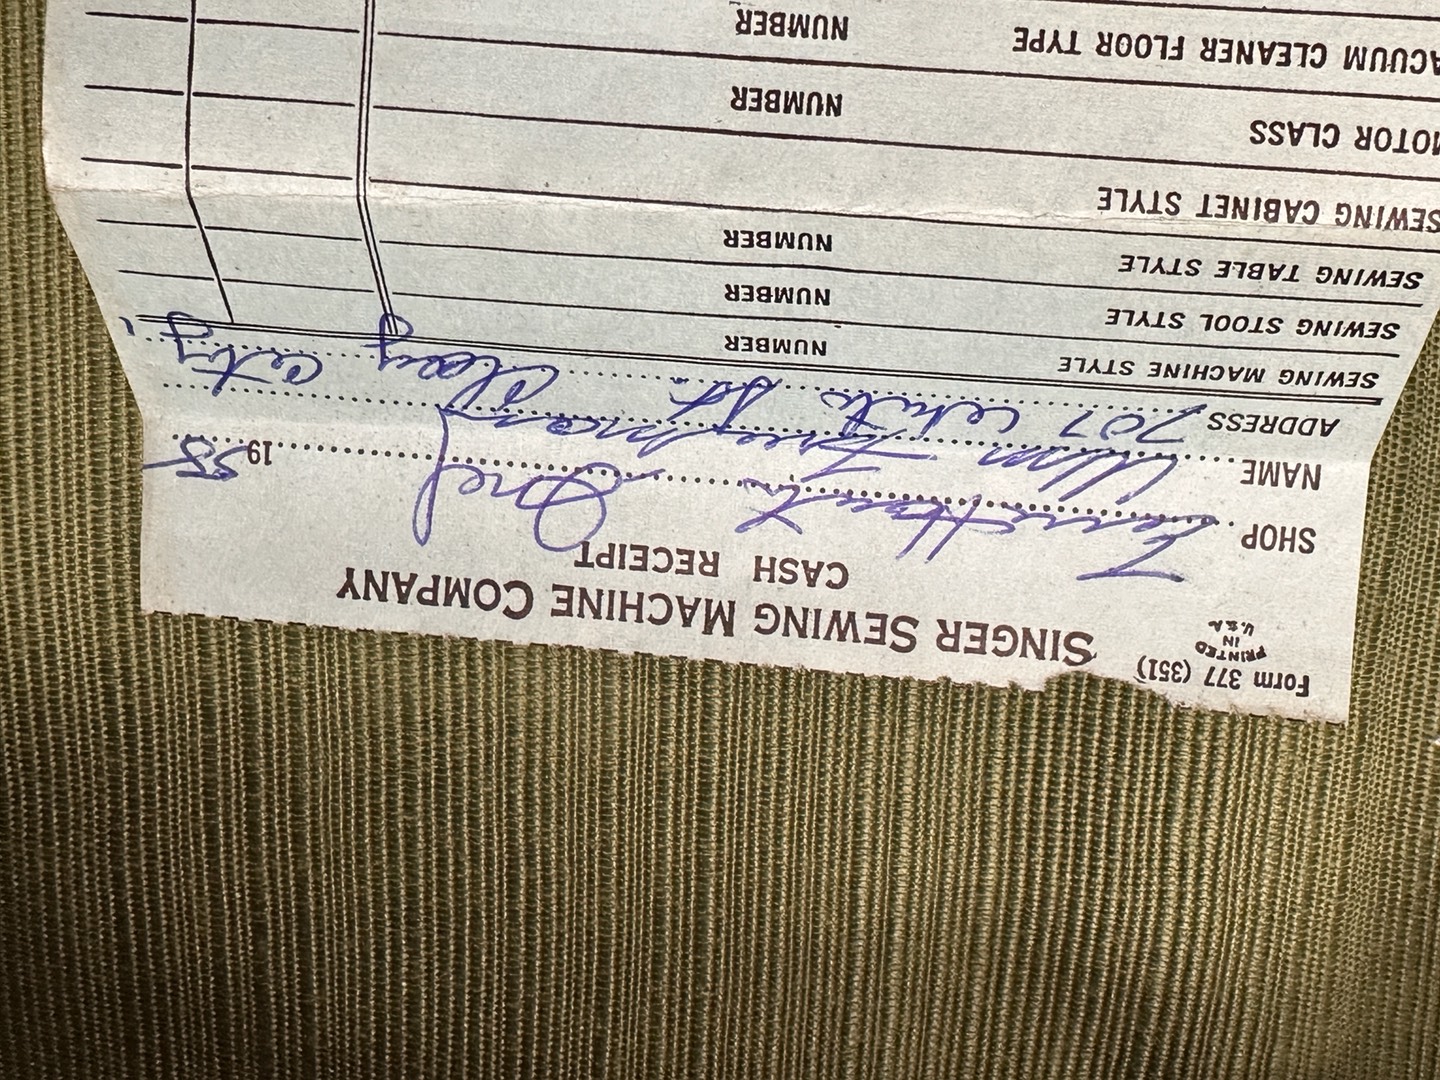 Form 377 (351)
PRINTED
IN
U.S.A.
SINGER SEWING MACHINE COMPANY
CASH RECEIPT
SHOP Terre Haute Ind 19 55
NAME Wm Freeman
ADDRESS 707 St. City
SEWING MACHINE STYLE NUMBER
SEWING STOOL STYLE NUMBER
SEWING TABLE STYLE NUMBER
SEWING CABINET STYLE
MOTOR CLASS NUMBER
ACUUM CLEANER FLOOR TYPE NUMBER